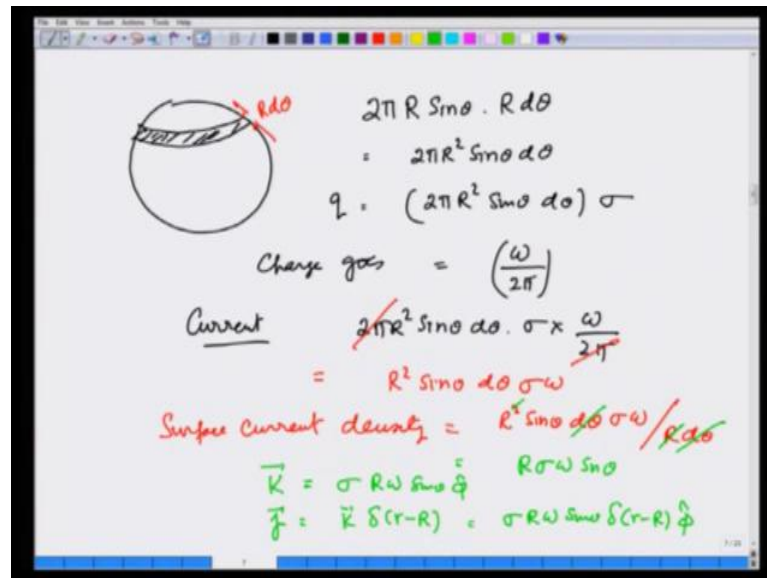 File Edit View Insert Actions Tools Help
Rdθ
2π R Sinθ . R dθ
= 2πR² Sinθ dθ
q = (2πR² Sinθ dθ) σ
Charge goes = (ω/2π)
Current 2πR² Sinθ dθ. σ × ω/2π
= R² Sinθ dθ σω
Surface Current density = R² Sinθ dθ σω / Rdθ
= Rσω Sinθ
K⃗ = σ Rω Sinθ φ̂
j⃗ = K⃗ δ(r-R) = σ Rω Sinθ δ(r-R) φ̂